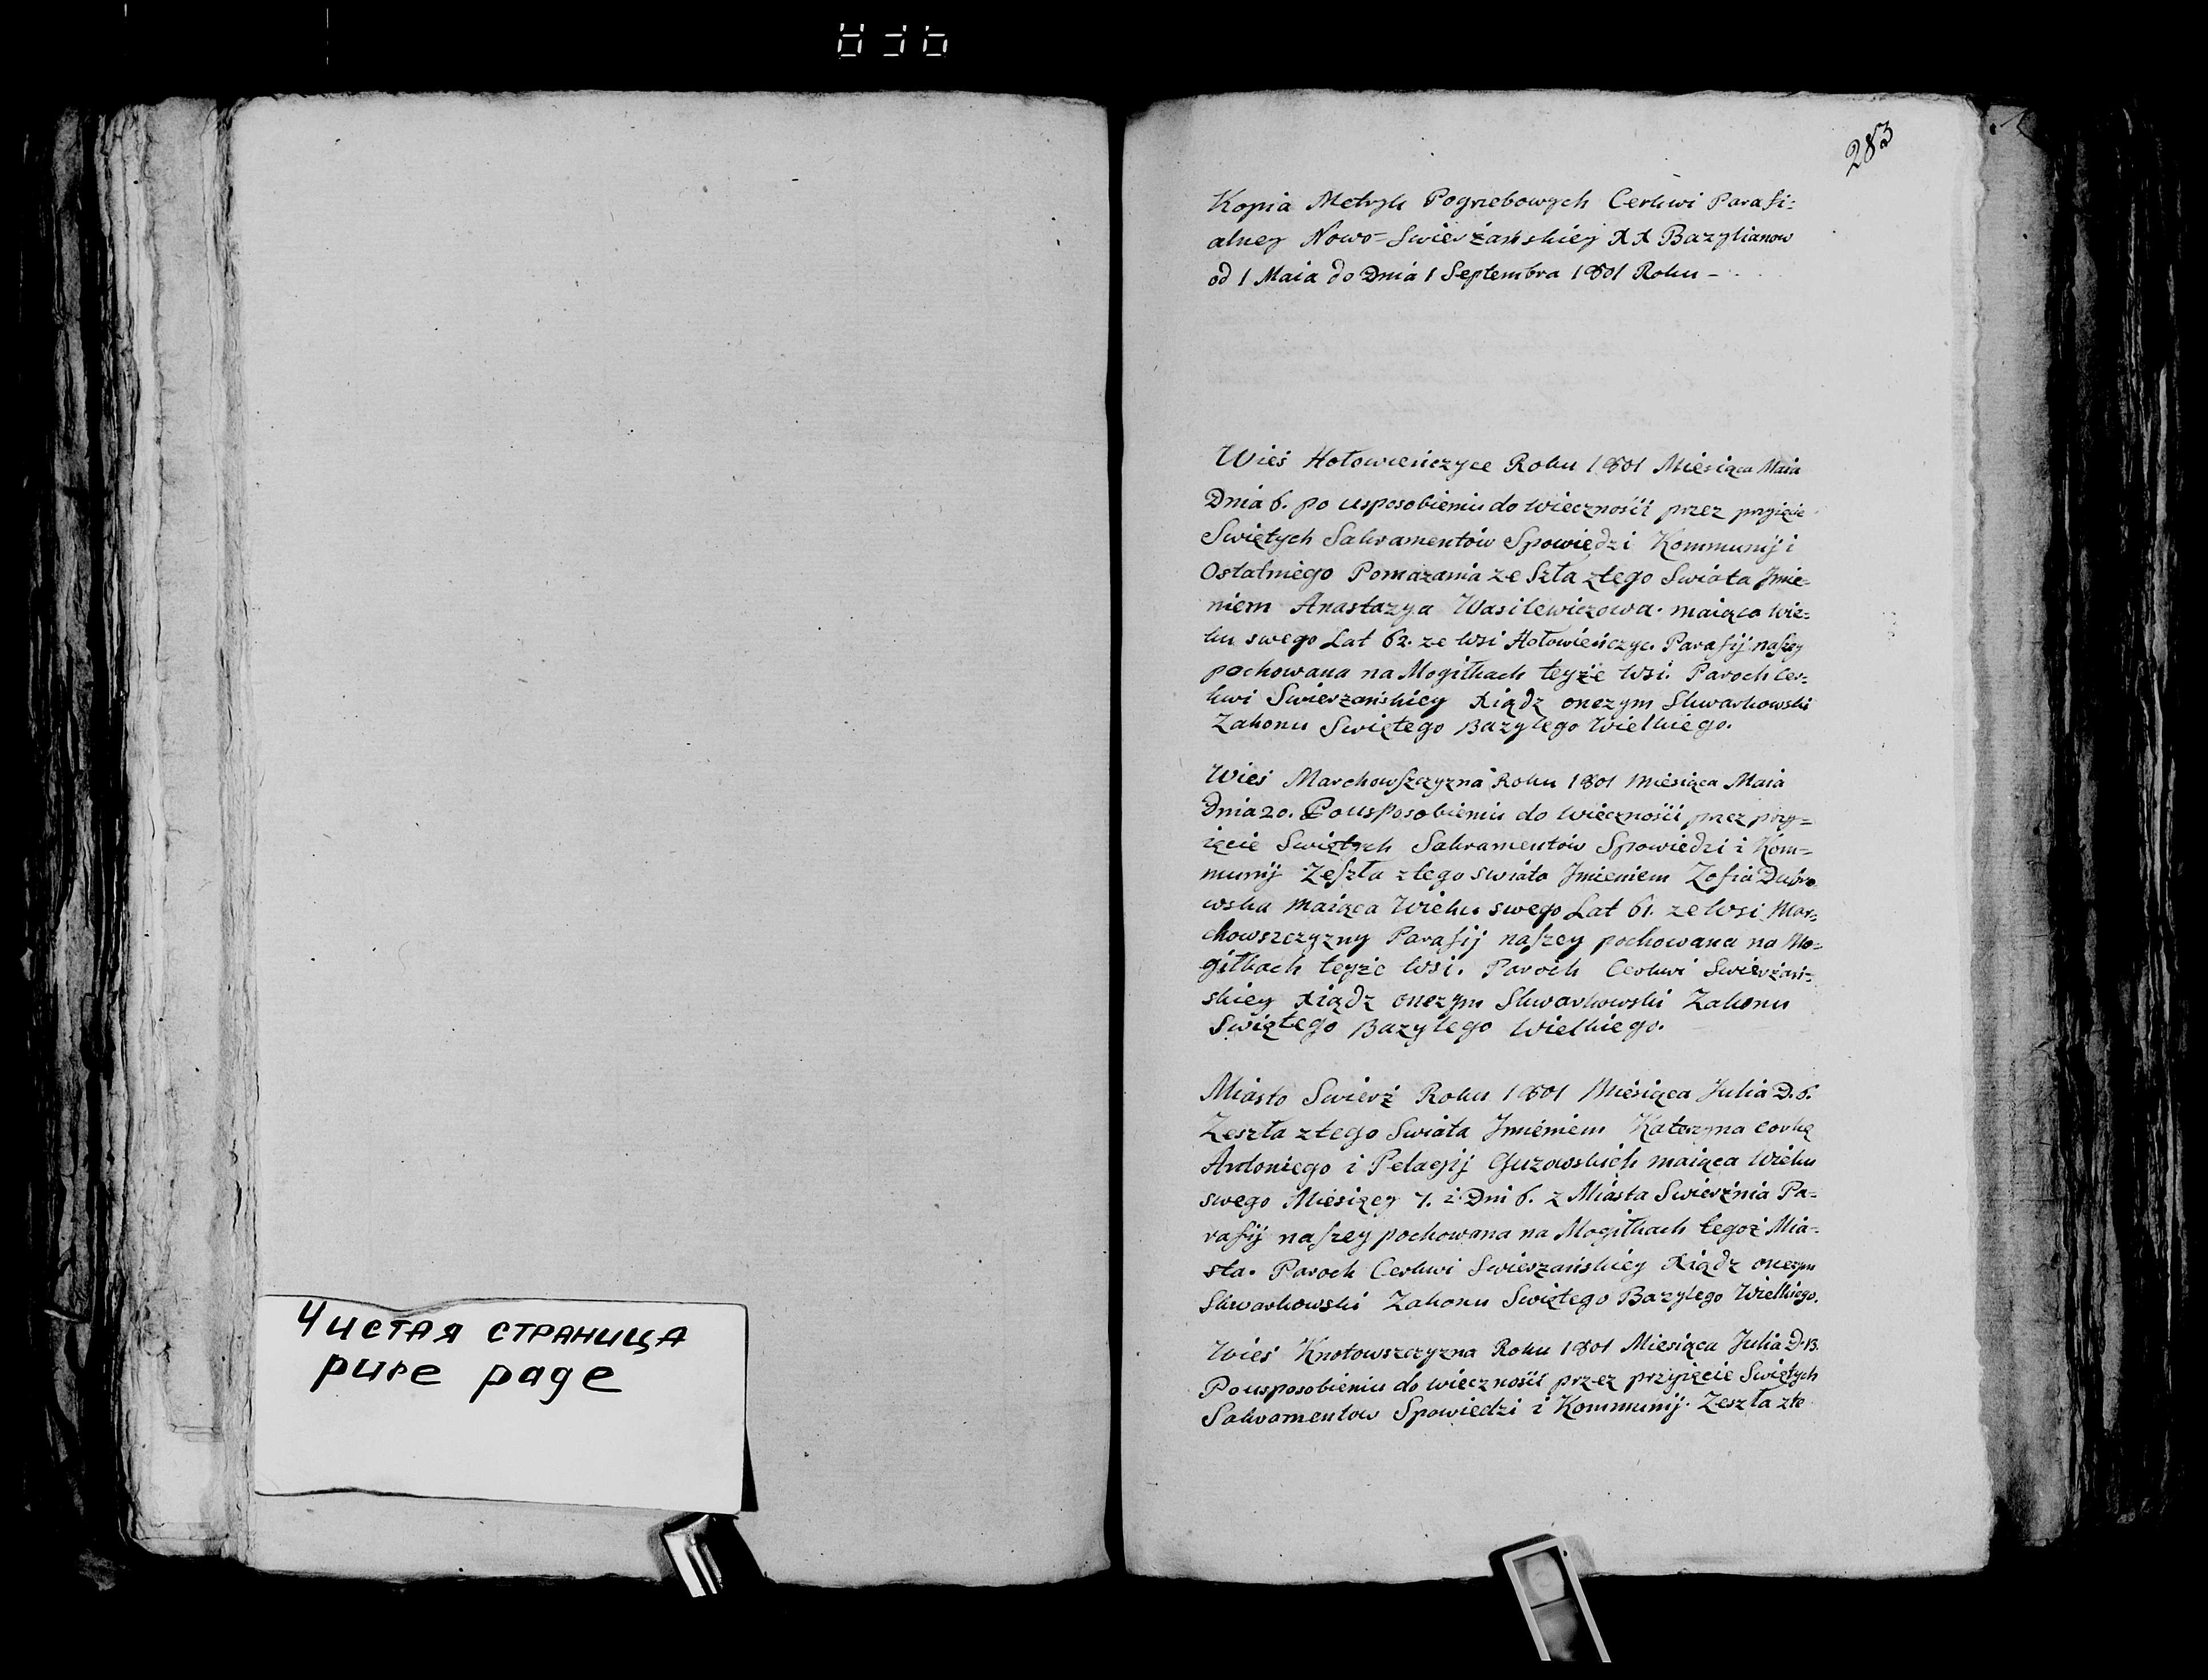 Чистая страница
pure page
283
Kopia Metryk Pogrzebowych Cerkwi Parafi=
alney Nowo=Swierżańskiey XX Bazylianow
od 1 Maia do Dnia 1 Septembra 1801 Roku -
Wieś Hołowieńczyce Roku 1801 Miesiąca Maia
Dnia 6. po usposobieniu do wiecznośći przez przyięcie
Swiętych Sakramentów Spowiedzi Kommunij i
Ostatniego Pomazania zeszła ztego Swiata Jmie=
niem Anastazya Wasilewiczowa. maiąca wie=
ku swego Lat 62. ze Wsi Hołowieńczyc. Parafij naszey
pochowana na Mogiłkach teyże Wsi. Paroch Cer=
kwi Swierzańskiey Xiądz onezym Skwarkowski
Zakonu Swiętego Bazylego Wielkiego.
Wieś Marchowszczyzna Roku 1801 Miesiąca Maia
Dnia 20. Po usposobieniu do wiecznośći przez przy=
ięcie Swiętych Sakramentów Spowiedzi i Kom=
munij Zeszła ztego swiata Jmieniem Zofia Dubro
wska maiąca Wieku swego Lat 61. ze Wsi Mar=
chowszczyzny Parafij naszey pochowana na Mo=
giłkach teyże Wsi. Paroch Cerkwi Swierżań=
skiey Xiądz onezym Skwarkowski Zakonu
Swiętego Bazylego Wielkiego.
Miasto Swierż Roku 1801 Miesiąca Julia D. 6.
Zeszła ztego Swiata Jmieniem Katerzyna corka
Antoniego i Pelagij Guzowskich maiąca Wieku
swego Miesięcy 7. i Dni 6. z Miasta Swierżnia Pa=
rafij naszey pochowana na Mogiłkach tegoż Mia=
sta. Paroch Cerkwi Swierzańskiey Xiądz onezym
Skwarkowski Zakonu Swiętego Bazylego Wielkiego.
Wieś Knotowszczyzna Roku 1801 Miesiąca Julia D. 13.
Po usposobieniu do wiecznośći przez przyięcie Swiętych
Sakramentow Spowiedzi i Kommunij. Zeszła zte